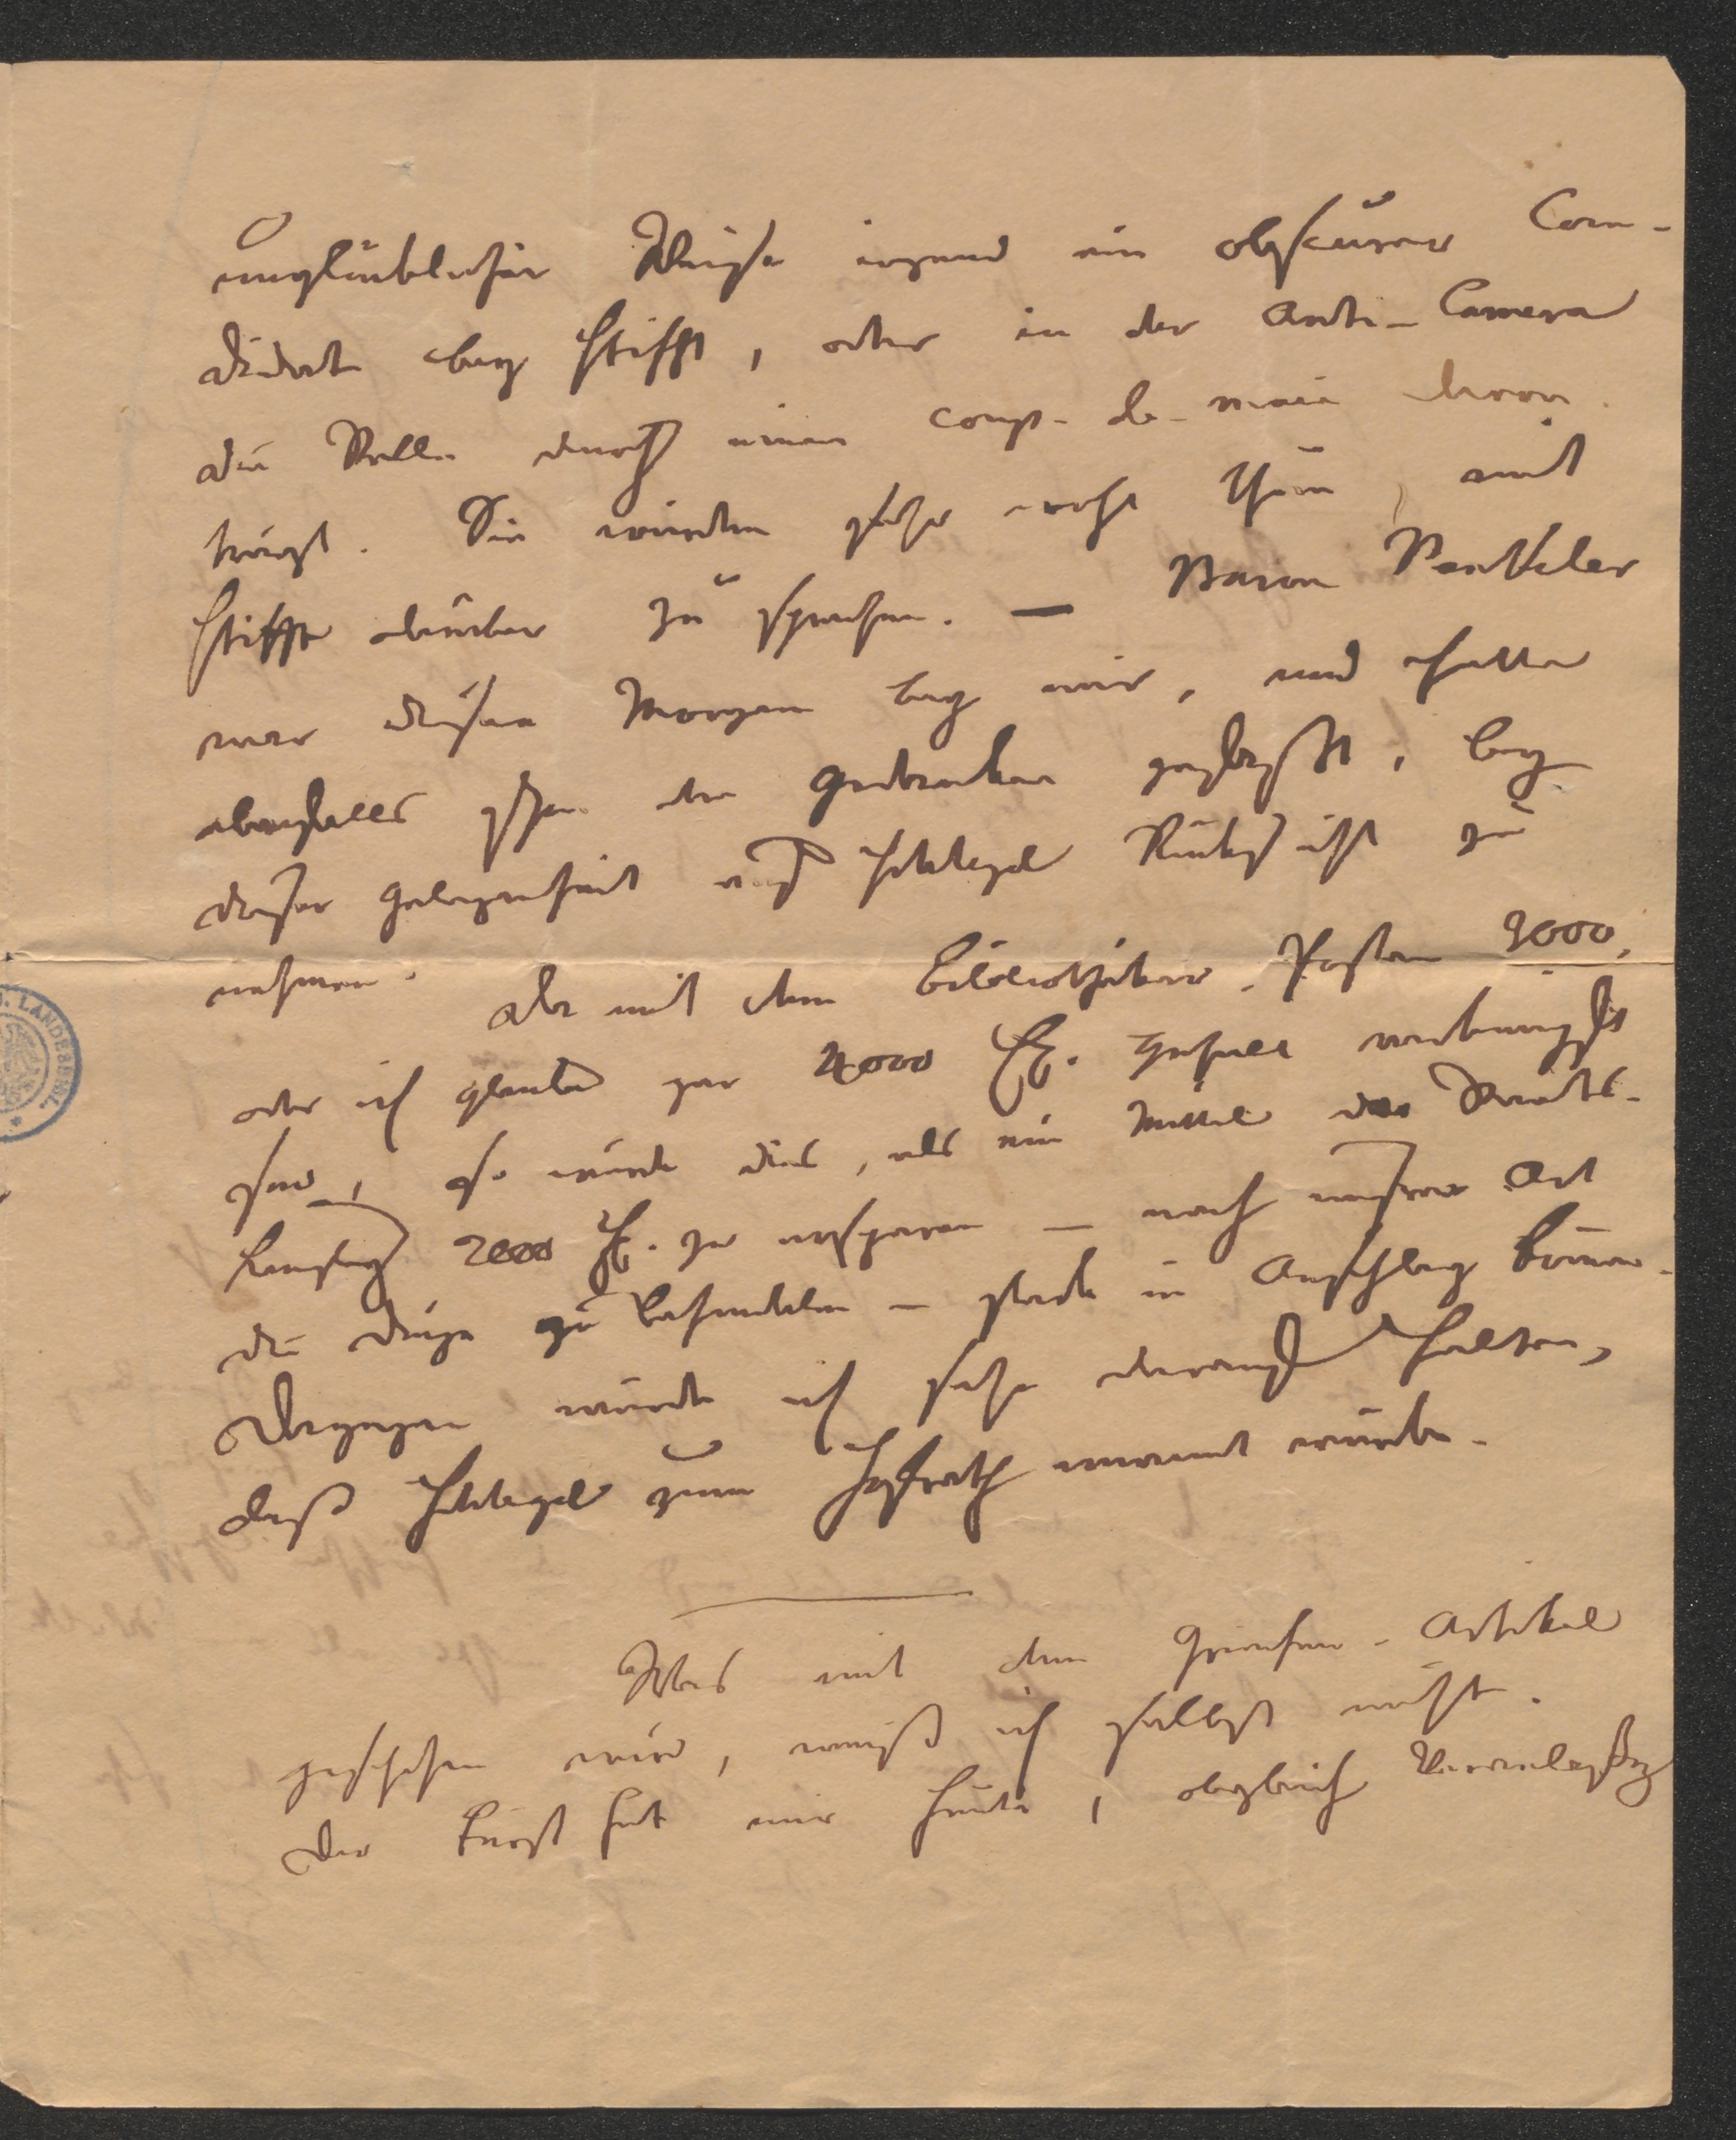 unglücklicher Weise irgend ein obscurer Can-
didat bey Stifft, oder in der Anti-Camera
die Stelle durch einen coup-de-main davon
trägt. Sie würden sehr wohl thun, mit
Stifft darüber zu sprechen. — Baron Penkler
war diesen Morgen bey mir, und hatte
ebenfalls schon den Gedanken gefaßt, bey
dieser Gelegenheit auf Schlegel Rücksicht zu
nehmen. Da mit dem Bibliothekar-Posten 3000,
oder ich glaube gar 4000 fl. Gehalt verknüpft
sind, so würde dies, als ein Mittel der Staats-
kasse 2000 fl. zu ersparen — nach unsrer Art
die Dinge zu behandeln — stark in Anschlag kommen.
Dagegen würde ich sehr darauf halten,
daß Schlegel zum Hofrath ernannt würde.
Was mit dem Griechen-Artikel
geschehen wird, weiß ich selbst nicht.
Der Fürst hat mir heute, obgleich Veranlaßg
J. LANDESBIBL.